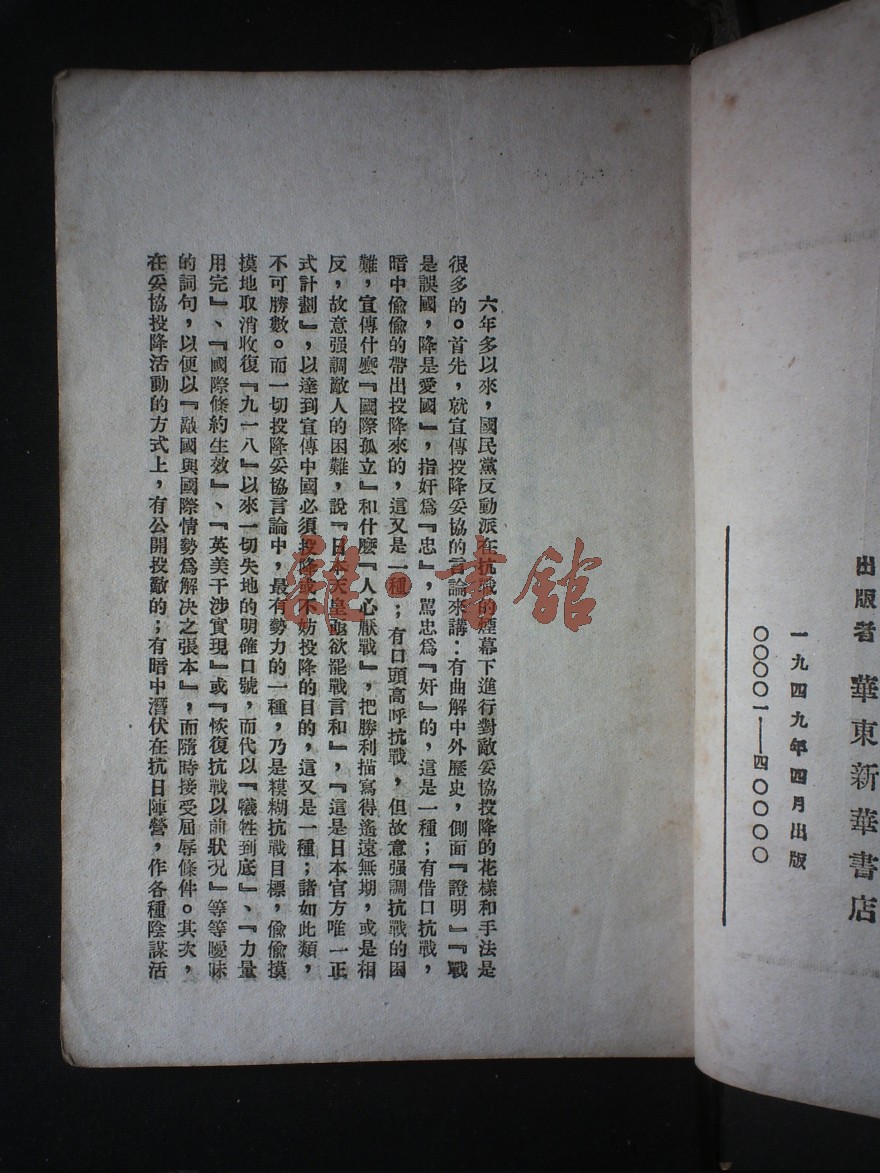 出版者 華東新華書店
一九四九年四月出版
〇〇〇〇一——四〇〇〇〇
六年多以來，國民黨反動派在抗戰的煙幕下進行對敵妥協投降的花樣和手法是
很多的。首先，就宣傳投降妥協的言論來講：有曲解中外歷史，側面『證明』『戰
是誤國，降是愛國』，指奸爲『忠』，駡忠爲『奸』的，這是一種；有借口抗戰，
暗中偷偷的帶出投降來的，這又是一種；有口頭高呼抗戰，但故意强調抗戰的困
難，宣傳什麽『國際孤立』和什麽『人心厭戰』，把勝利描寫得遙遠無期，或是相
反，故意强調敵人的困難，說『日本天皇亟欲罷戰言和』，『這是日本官方唯一正
式計劃』，以達到宣傳中國必須投降或不妨投降的目的，這又是一種；諸如此類，
不可勝數。而一切投降妥協言論中，最有勢力的一種，乃是糢糊抗戰目標，偷偷摸
摸地取消收復『九一八』以來一切失地的明確口號，而代以『犧牲到底』、『力量
用完』、『國際條約生效』、『英美干涉實現』或『恢復抗戰以前狀况』等等曖昧
的詞句，以便以『敵國與國際情勢爲解决之張本』，而隨時接受屈辱條件。其次，
在妥協投降活動的方式上，有公開投敵的；有暗中潛伏在抗日陣營，作各種陰謀活
雜·書館